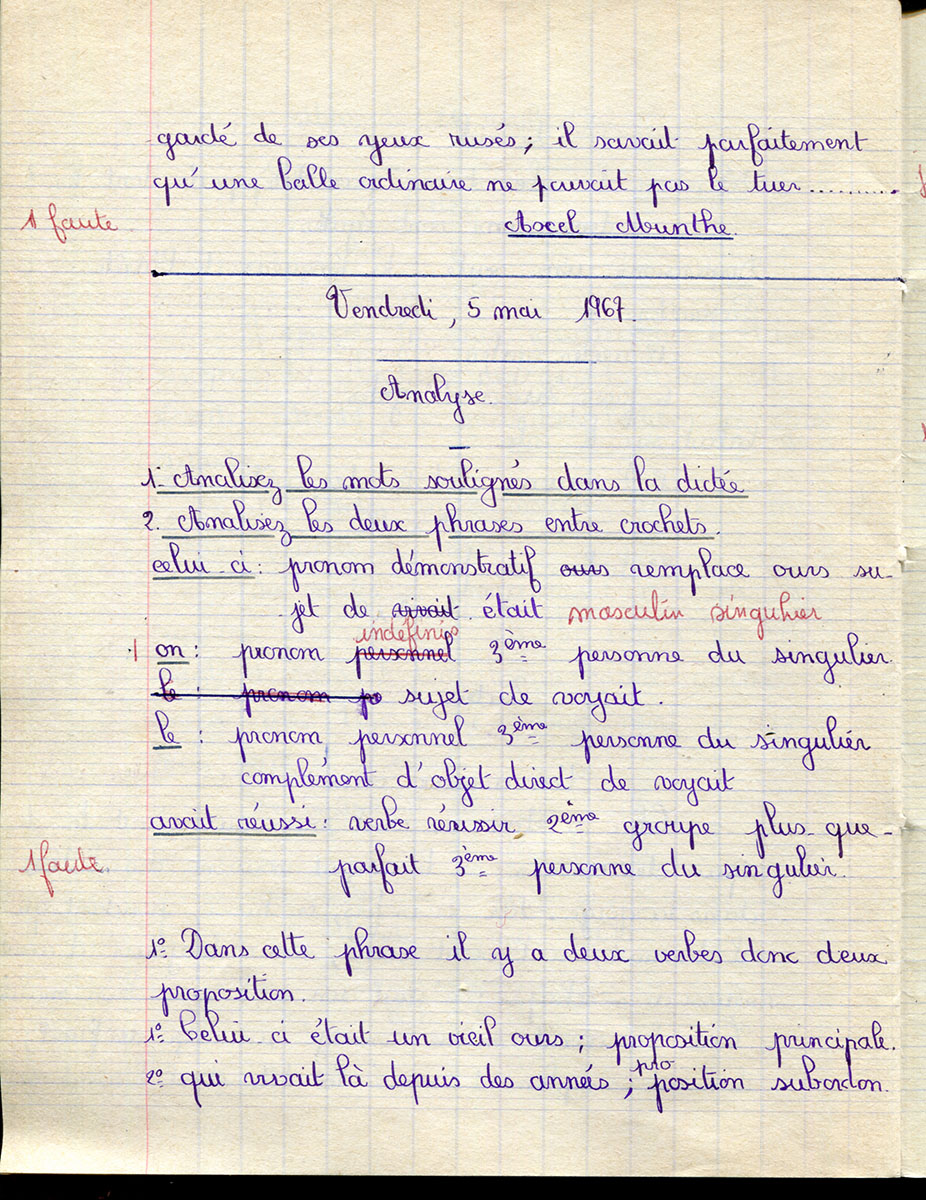 gardé de ses yeux rusés; il savait parfaitement
qu'une balle ordinaire ne pouvait pas le tuer..........
1 faute
Axel Munthe.
Vendredi, 5 mai 1967.
Analyse.
1. Analisez les mots soulignés dans la dictée
2. Analisez les deux phrases entre crochets.
celui ci : pronom démonstratif ours remplace ours su-
jet de vivait était masculin singulier
indéfini
1 on : pronom personnel 3ème personne du singulier.
le : pronom pe sujet de voyait.
le : pronom personnel 3ème personne du singulier
complément d'objet direct de voyait
avait réussi : verbe réussir 2ème groupe plus-que-
1 faute.
parfait 3ème personne du singulier.
1º Dans cette phrase il y a deux verbes donc deux
proposition.
1º Celui ci était un vieil ours ; proposition principale.
2º qui vivait là depuis des années ; proposition subordon.